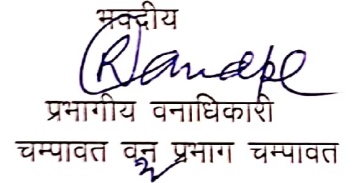 भवदीय
प्रभागीय वनाधिकारी
चम्पावत वन प्रभाग चम्पावत